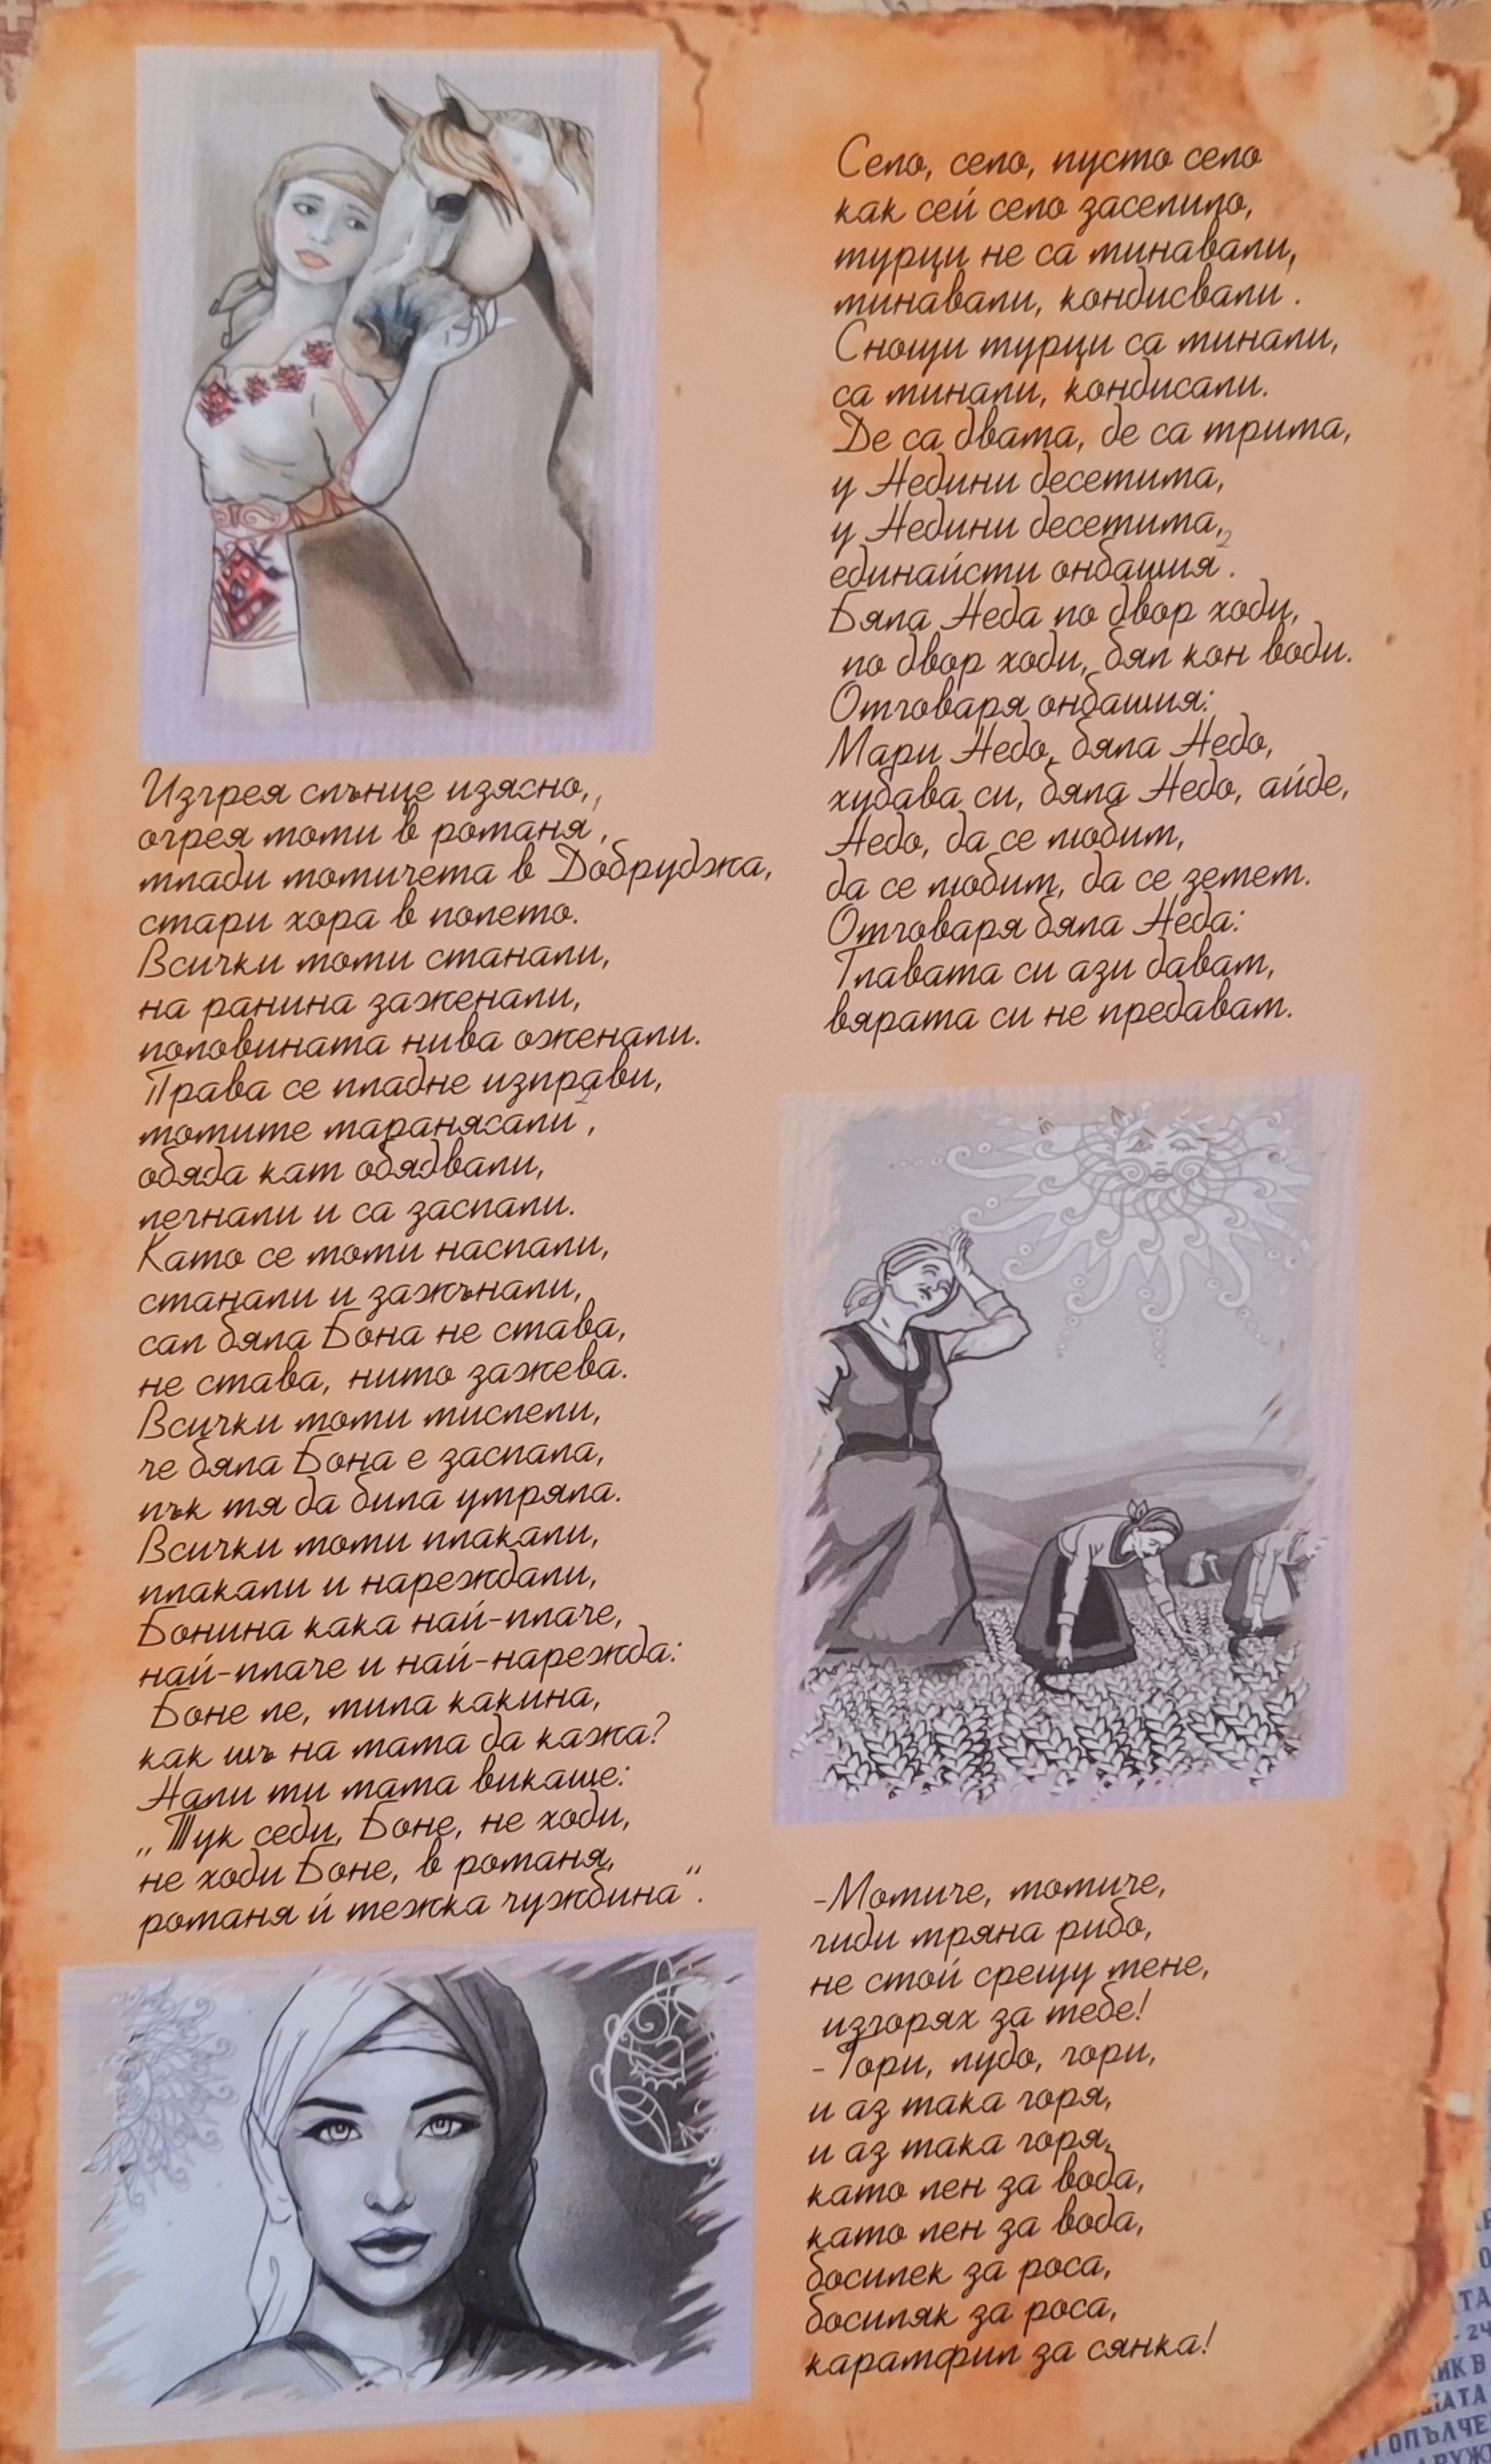 Изгрея слънце изясно,,
огрея моми в романя,
млади момичета в Добруджа,
стари хора в полето.
Всички моми станали,
на ранина заженали,
половината нива оженали.
Права се пладне изправи,
момите маранясали²,
обяда кат обядвали,
легнали и са заспали.
Като се моми наспали,
станали и зажънали,
сал бяла Бона не става,
не става, нито зажева.
Всички моми мислели,
че бяла Бона е заспала,
пък тя да била умряла.
Всички моми плакали,
плакали и нареждали,
Бонина кака най-плаче,
най-плаче и най-нарежда:
Боне ле, мила какина,
как шъ на мама да кажа?
Нали ти мама викаше:
„Тук седи, Боне, не ходи,
не ходи Боне, в романя,
романя ѝ тежка чужбина“.
Село, село, пусто село
как сей село заселило,
турци не са минавали,
минавали, кондисвали.
Снощи турци са минали,
са минали, кондисали.
Де са двама, де са трима,
у Недини десетима,
у Недини десетима,
единайсти онбашия².
Бяла Неда по двор ходи,
по двор ходи, бял кон води.
Отговаря онбашия:
Мари Недо, бяла Недо,
хубава си, бяла Недо, айде,
Недо, да се любим,
да се любим, да се земем.
Отговаря бяла Неда:
Главата си ази давам,
вярата си не предавам.
-Момиче, момиче,
гиди мряна рибо,
не стой срещу мене,
изгорях за тебе!
-Гори, лудо, гори,
и аз така горя,
и аз така горя,
като лен за вода,
като лен за вода,
босилек за роса,
босиляк за роса,
карамфил за сянка!